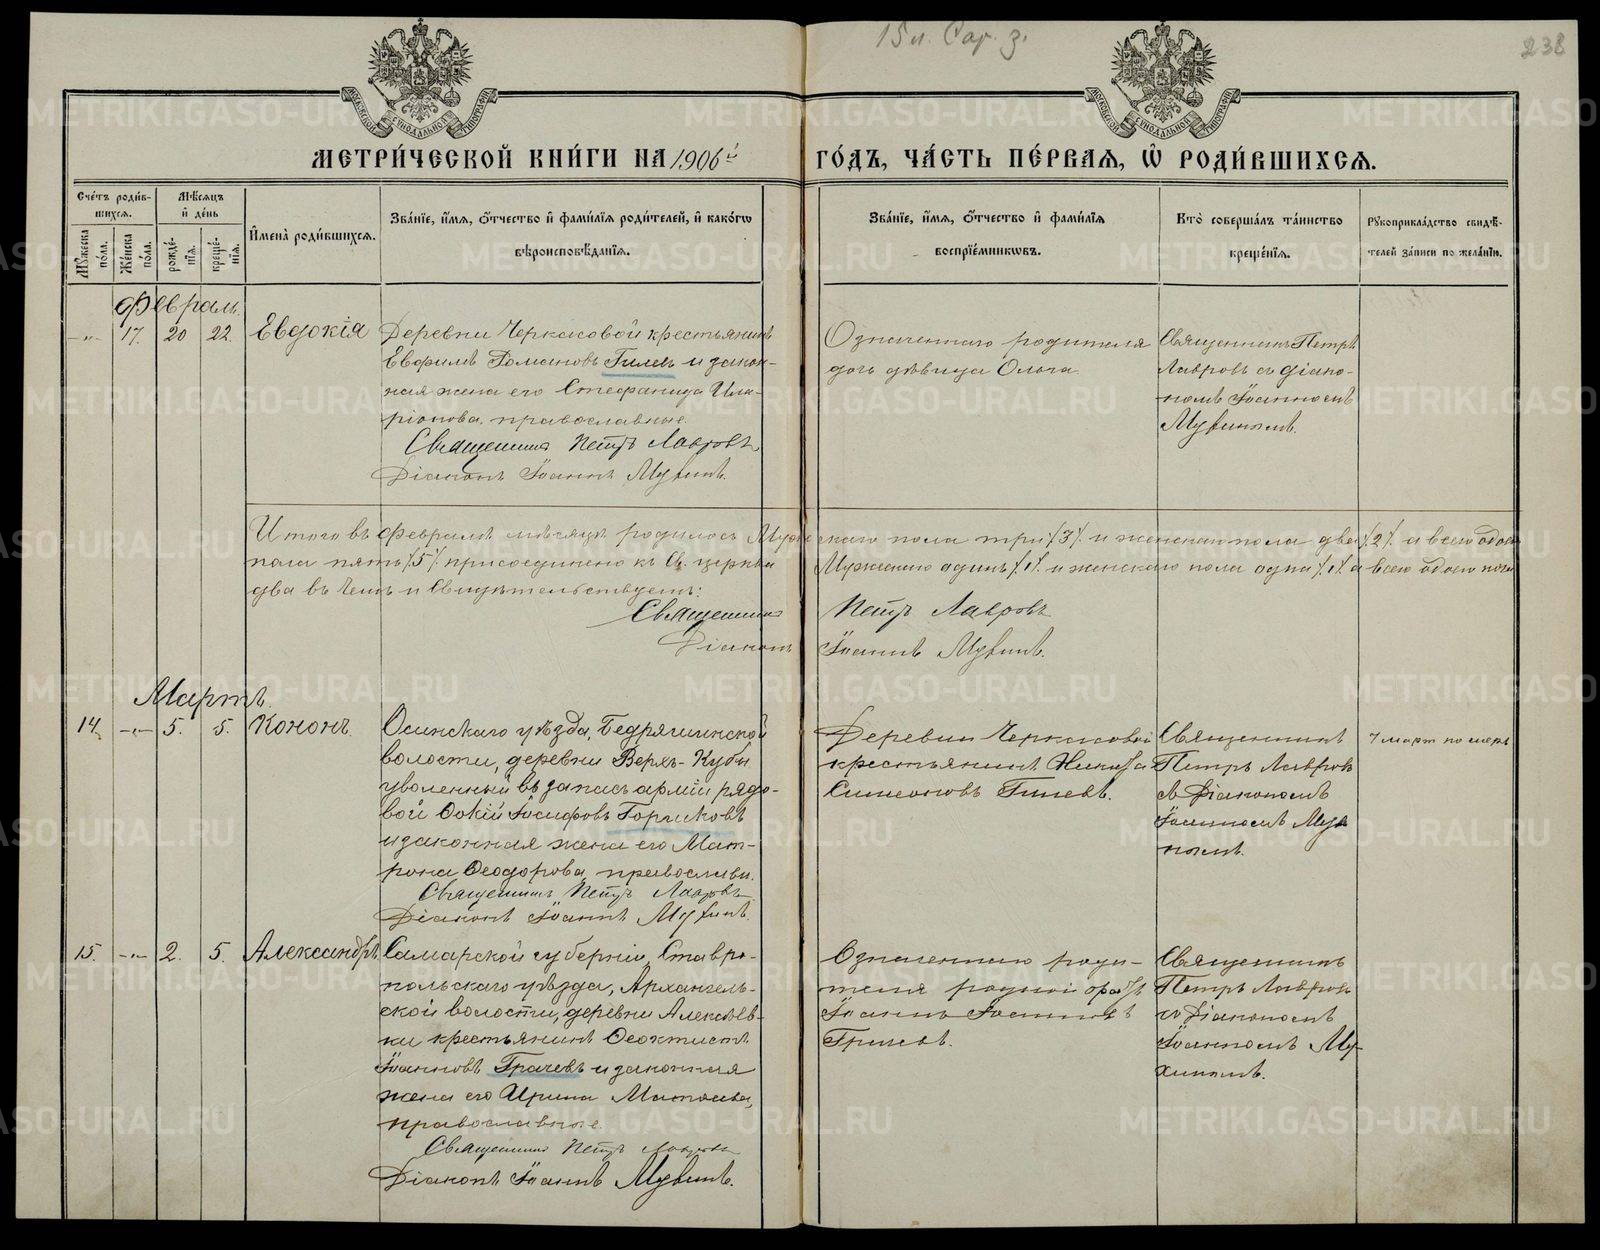 15 м. Сар. з.
238
МОСКОВСКОЙ СУНОДАЛЬНОЙ ТИПОГРАФІИ
МОСКОВСКОЙ СУНОДАЛЬНОЙ ТИПОГРАФІИ
МЕТРИ́ЧЕСКОЙ КНИ́ГИ НА 1906й
ГО́ДЪ, ЧА́СТЬ ПЕ́РВАЯ, Ѡ РОДИ́ВШИХСЯ.
Сче́тъ роди́вшихся.
Мꙋ́жеска по́ла.
Же́нска по́ла.
Мѣ́сяцъ и҆ де́нь
рожде́нїя.
креще́нїя.
И҆мена̀ роди́вшихся.
Зва́нїе, и҆́мя, ѻ҆́тчество и҆ фами́лїя роди́телей, и҆ како́гѡ
вѣроисповѣ́данїя.
Зва́нїе, и҆́мя, ѻ҆́тчество и҆ фами́лїя
воспрїе́мникѡвъ.
Кто̀ соверша́лъ та́инство
креще́нїя.
Рꙋкоприкла́дство свидѣ́телей за́писи по жела́нїю.
Февраль.
-"- 17. 20 22. Евдокія
Деревни Черкасовой крестьянинъ
Евфимъ Романовъ Гилевъ и закон-
ная жена его Стефанида Ила-
ріонова, православные.
Священникъ Петръ Лавровъ
Діаконъ Іоаннъ Мухинъ.
Означеннаго родителя
дочь дѣвица Ольга
Священникъ Петръ
Лавровъ съ діако-
номъ Іоанномъ
Мухинымъ.
Итого въ февралѣ мѣсяцѣ родилось Мужескаго пола три /3/ и женскаго пола два /2/ а всего обоего
пола пять /5/ присоединено къ Св. церкви Мужескаго одинъ /1/ и женскаго пола одна /1/ а всего обоего пола
два въ чемъ и свидѣтельствуемъ:
Священникъ Петръ Лавровъ
Діаконъ Іоаннъ Мухинъ.
Мартъ.
14. -"- 5. 5. Кононъ.
Осинскаго уѣзда, Бедряшинской
волости, деревни Верхъ-Кубы
уволенный въ запасъ арміи рядо-
вой Фокій Іосифовъ Горшковъ
и законная жена его Мат-
рона Ѳеодорова, православн.
Священникъ Петръ Лавровъ
Діаконъ Іоаннъ Мухинъ.
Деревни Черкасовой
крестьянинъ Никита
Симеоновъ Гилевъ.
Священникъ
Петръ Лавровъ
съ Діакономъ
Іоанномъ Мухи-
нымъ.
7 март померъ
15. -"- 2. 5. Александръ.
Самарской губерніи, Ставро-
польскаго уѣзда, Архангель-
ской волости, деревни Алексѣев-
ки крестьянинъ Ѳеоктистъ
Іоанновъ Грачевъ и законная
жена его Ирина Матѳеева,
православные.
Священникъ Петръ Лавровъ
Діаконъ Іоаннъ Мухинъ.
Означеннаго роди-
теля родной братъ
Іоаннъ Іоанновъ
Грачевъ.
Священникъ
Петръ Лавровъ
съ Діакономъ
Іоанномъ Му-
хинымъ.
METRIKI.GASO-URAL.RU